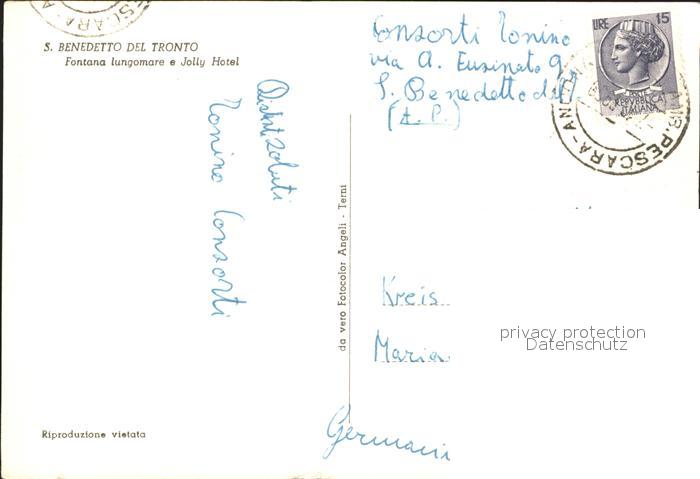 S. BENEDETTO DEL TRONTO
Fontana lungomare e Jolly Hotel
Distinti saluti
Tonino Consorti
da vero Fotocolor Angeli - Terni
Riproduzione vietata
Consorti Tonino
via A. Eusinato 9
S. Benedetto del T.
(A. P.)
LIRE 15
REPVBBLICA
ITALIANA
PESCARA-AN
ESCARA-A
Kreis
Maria
Germani
privacy protection
Datenschutz